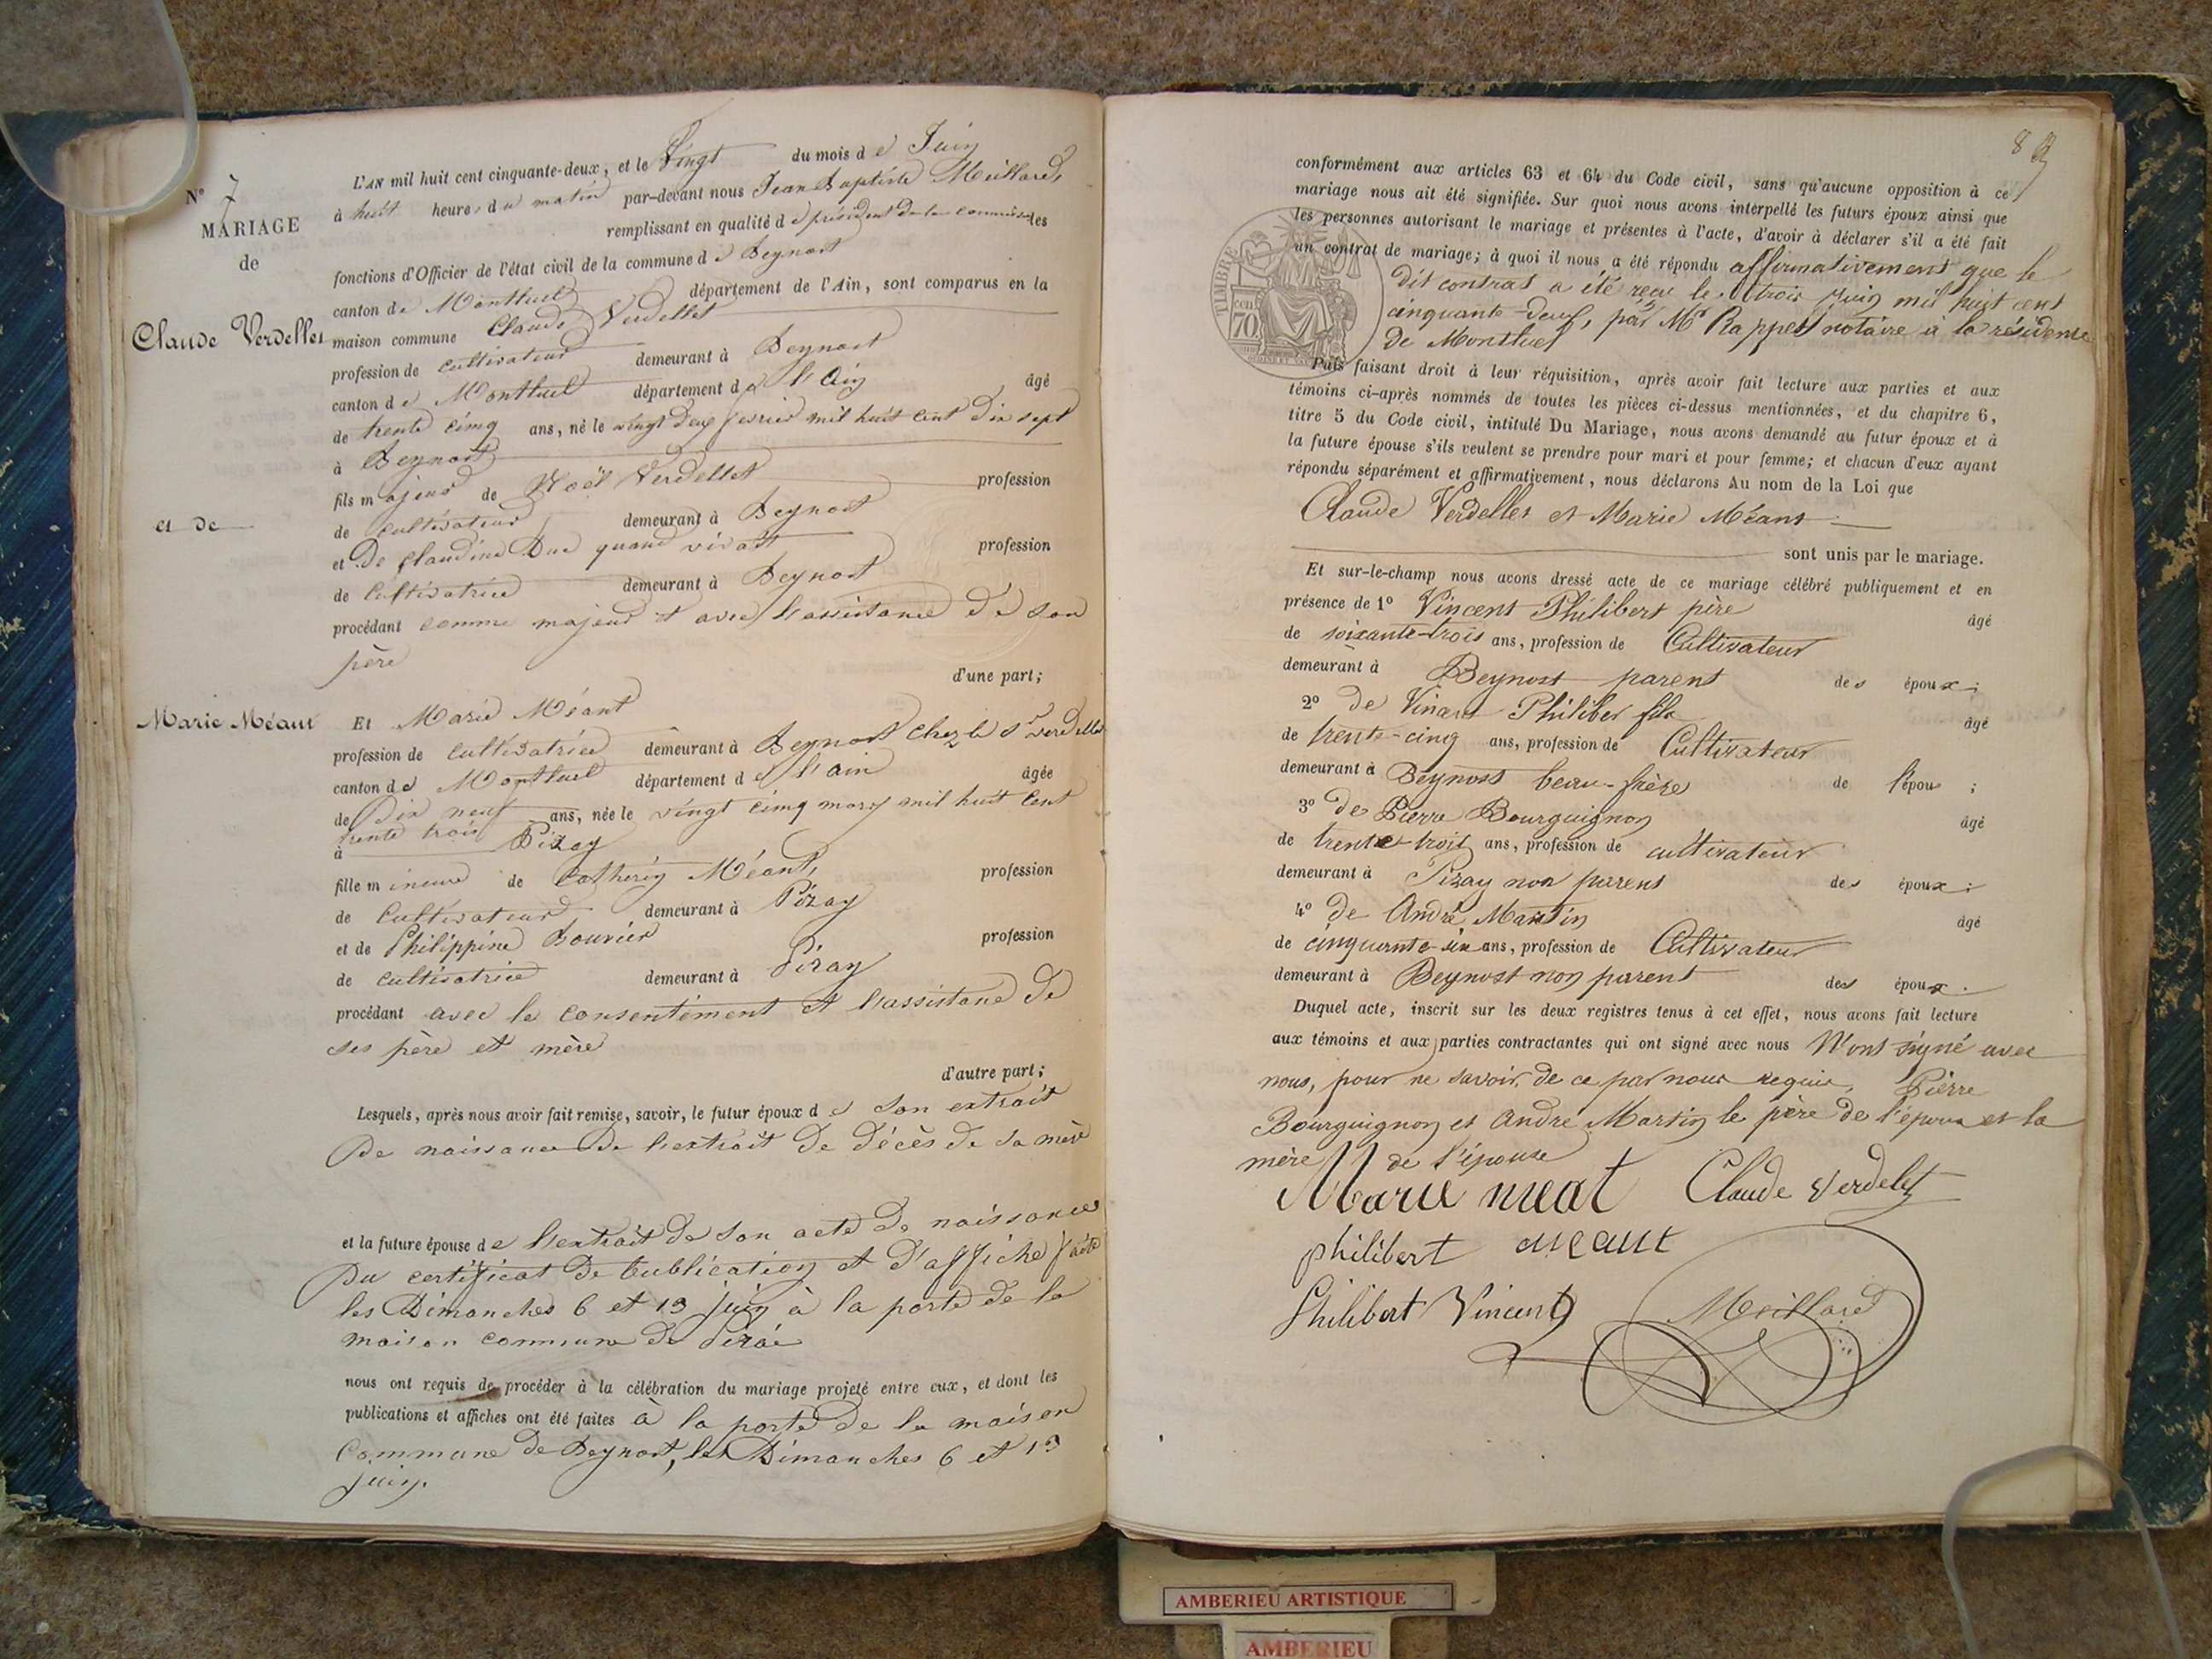 N° 7
MARIAGE
de
Claude Verdellet
et de
Marie Méant
L'AN mil huit cent cinquante-deux, et le Vingt du mois de Juin
à huit heures du matin par-devant nous Jean Baptiste Meillard,
remplissant en qualité de président de la commission les
fonctions d'Officier de l'état civil de la commune de Beynost
canton de Montluel département de l'Ain, sont comparus en la
maison commune Claude Verdellet
profession de cultivateur demeurant à Beynost
canton de Montluel département de l'Ain âgé
de trente cinq ans, né le vingt deux fevrier mil huit cent dix sept
à Beynost
fils majeur de Noël Verdellet profession
de cultivateur demeurant à Beynost
et De Claudine Duc quand vivait profession
de Cultivatrice demeurant à Beynost
procédant comme majeur et avec l'assistance de son
père
d'une part;
Et Marie Méant
profession de cultivatrice demeurant à Beynost chez le Sr verdellet
canton de Montluel département de l'ain âgée
de Dix neuf ans, née le vingt cinq mars mil huit cent
trente trois
à Pizay
fille mineure de Catherin Méant, profession
de Cultivateur demeurant à Pizay
et de Philippine Bouvier profession
de cultivatrice demeurant à Pizay
procédant avec le consentement et l'assistance de
ses père et mère
d'autre part;
Lesquels, après nous avoir fait remise, savoir, le futur époux de son extrait
De naissance De l'extrait De décès de sa mère
et la future épouse de l'extrait de son acte De naissance
Du certificat De Publication et D'affiche faite
les Dimanches 6 et 13 juin à la porte de la
maison commune de Pizai
nous ont requis de procéder à la célébration du mariage projeté entre eux, et dont les
publications et affiches ont été faites à la porte de la maison
Commune de Beynost, les Dimanches 6 et 13
juin.
conformément aux articles 63 et 64 du Code civil, sans qu'aucune opposition à ce
mariage nous ait été signifiée. Sur quoi nous avons interpellé les futurs époux ainsi que
les personnes autorisant le mariage et présentes à l'acte, d'avoir à déclarer s'il a été fait
un contrat de mariage; à quoi il nous a été répondu affirmativement que le
dit contrat a été reçu le trois Juin mil huit cent
cinquante-deux, par Mr Rappet notaire à la résidence
de Montluel
TIMBRE
cen
70
Puis faisant droit à leur réquisition, après avoir fait lecture aux parties et aux
témoins ci-après nommés de toutes les pièces ci-dessus mentionnées, et du chapitre 6,
titre 5 du Code civil, intitulé Du Mariage, nous avons demandé au futur époux et à
la future épouse s'ils veulent se prendre pour mari et pour femme; et chacun d'eux ayant
répondu séparément et affirmativement, nous déclarons Au nom de la Loi que
Claude Verdellet et Marie Méant
sont unis par le mariage.
Et sur-le-champ nous avons dressé acte de ce mariage célébré publiquement et en
présence de 1° Vincent Philibert père âgé
de soixante-trois ans, profession de Cultivateur
demeurant à Beynost parent des époux;
2° de Vincent Philibert fils âgé
de trente-cinq ans, profession de Cultivateur
demeurant à Beynost beau-frère de l'époux;
3° de Pierre Bourguignon âgé
de trente-trois ans, profession de cultivateur
demeurant à Pizay non parent des époux;
4° de André Martin âgé
de cinquante-six ans, profession de Cultivateur
demeurant à Beynost non parent des époux.
Duquel acte, inscrit sur les deux registres tenus à cet effet, nous avons fait lecture
aux témoins et aux parties contractantes qui ont signé avec nous N'ont signé avec
nous, pour ne savoir, de ce par nous requis, Pierre
Bourguignon et André Martin le père de l'époux et la
mère de l'épouse
Marie meat Claude Verdelet
philibert meant
Philibert Vincent Meillard
AMBERIEU ARTISTIQUE
AMBERIEU